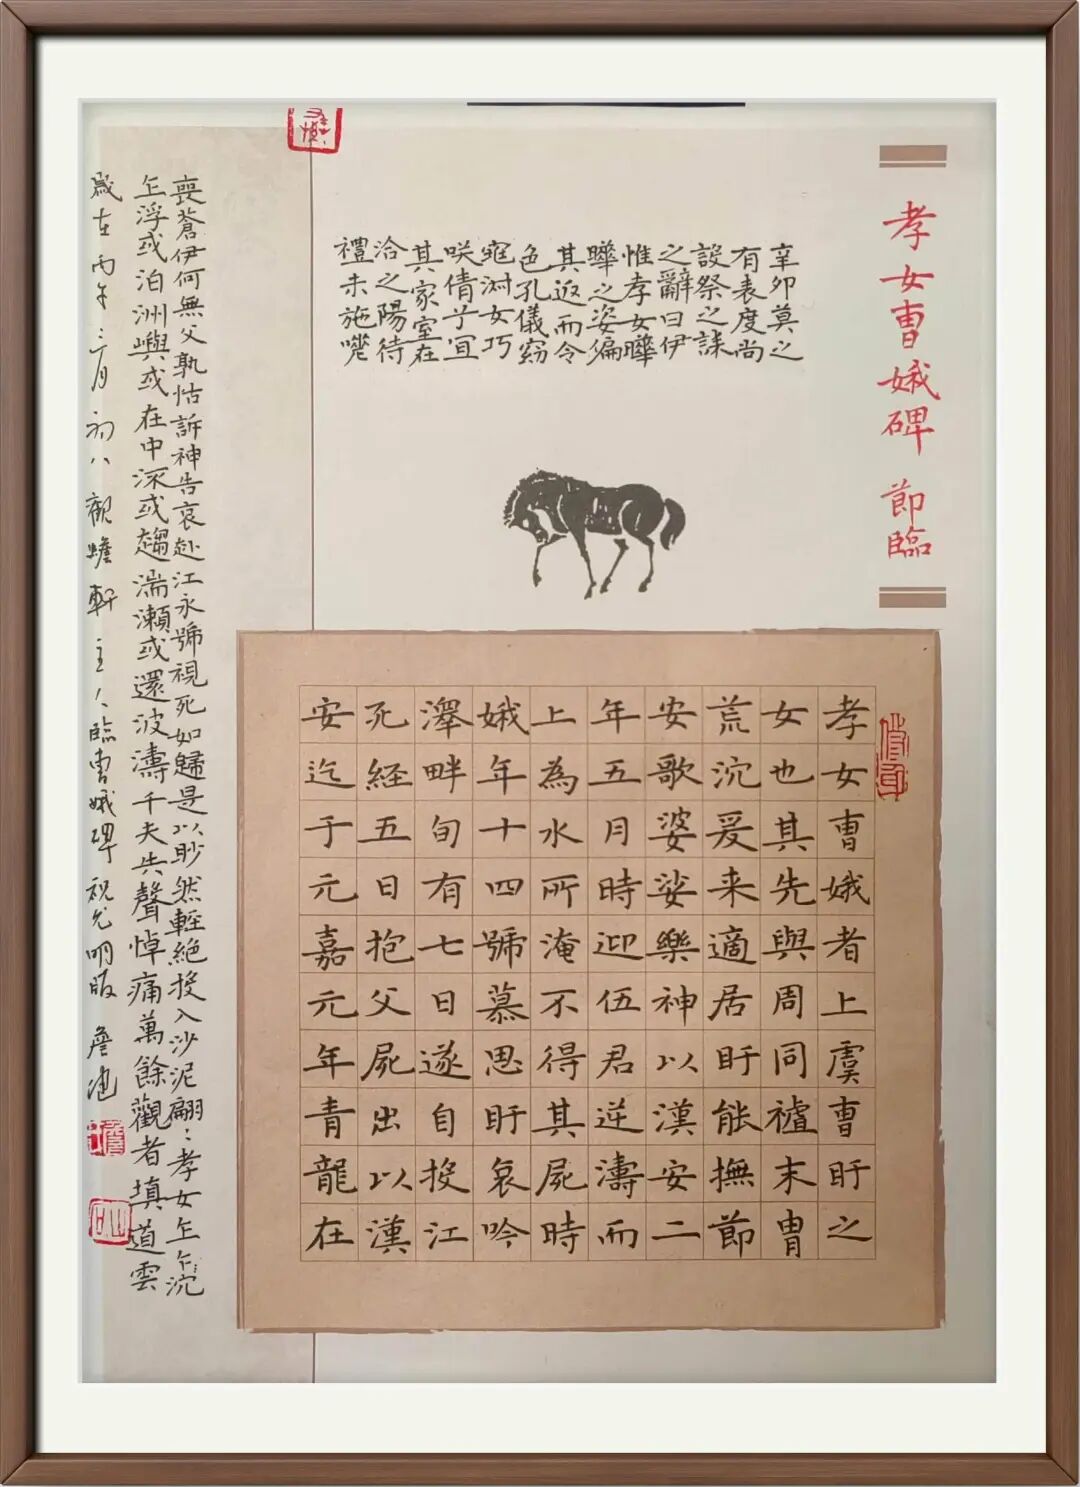 孝女曹娥碑 節臨
孝女曹娥者上虞曹盱之
女也其先與周同末胄
荒沈爰来適居盱能撫節
安歌婆娑樂神以漢安二
年五月時迎伍君逆濤而
上為水所淹不得其屍時
娥年十四號慕思盱哀吟
澤畔旬有七日遂自投江
死経五日抱父屍出以漢
安迄于元嘉元年青龍在
辛卯莫之
有表度尚
設祭之誄
之辭曰伊
惟孝女曄
曄之姿偏
其返而令
色孔儀窈
窕淑女巧
咲倩兮宜
其家室在
洽之陽待
禮未施嗟
喪蒼伊何無父孰怙訴神告哀赴江永號視死如歸是以眇然輕絕投入沙泥翩:孝女乍乍沉
乍浮或泊洲嶼或在中流或趨湍瀨或還波濤千夫失聲悼痛萬餘觀者填道雲
歲在丙午三月初八觀蟾軒主人臨曹娥碑祝允明版 詹建